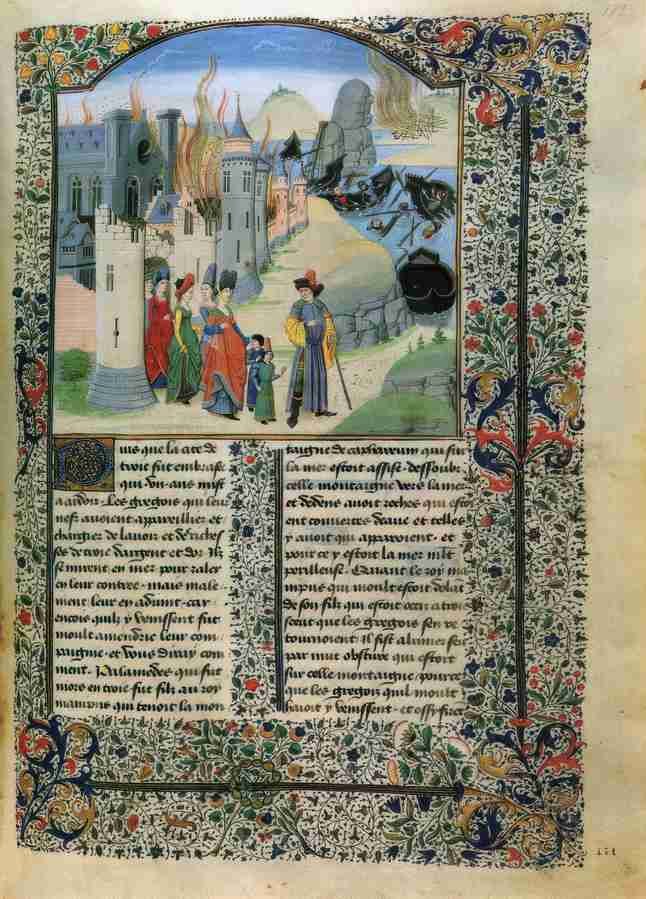 uis que la cite de
troie fut embrasee
qui .vii. ans mist
a ardoir. Les gregois qui leur
nefz avoient appareillier et
chargier de lavoir et de riches
ses de troie dargent et dor Ilz
se mirent en mer pour raler
en leur contree. mais male
ment leur en advint. car
encois quilz y venissent fut
moult amendrie leur com
paignie. et vous diray com
ment. Palamedes qui fut
mors en troie fut filz au roy
manpus qui tenoit la mon
taigne de caphareum qui sur
la mer estoit assise. dessoubz
celle montaigne vers la mer
et dedens avoit roches qui estoi
ent couvertes deaue et telles
y avoit qui apparoient. et
pour ce y estoit la mer mlt
perilleuse. Quant le roy ma
mpus qui moult estoit dolat
de son filz qui estoit occis a troie
sceut que les gregois sen re
tournoient il fist alumer feu
par nuit obscure qui estoit
sur celle montaigne. pource
que les gregois quil moult
haoit y venissent. et
151